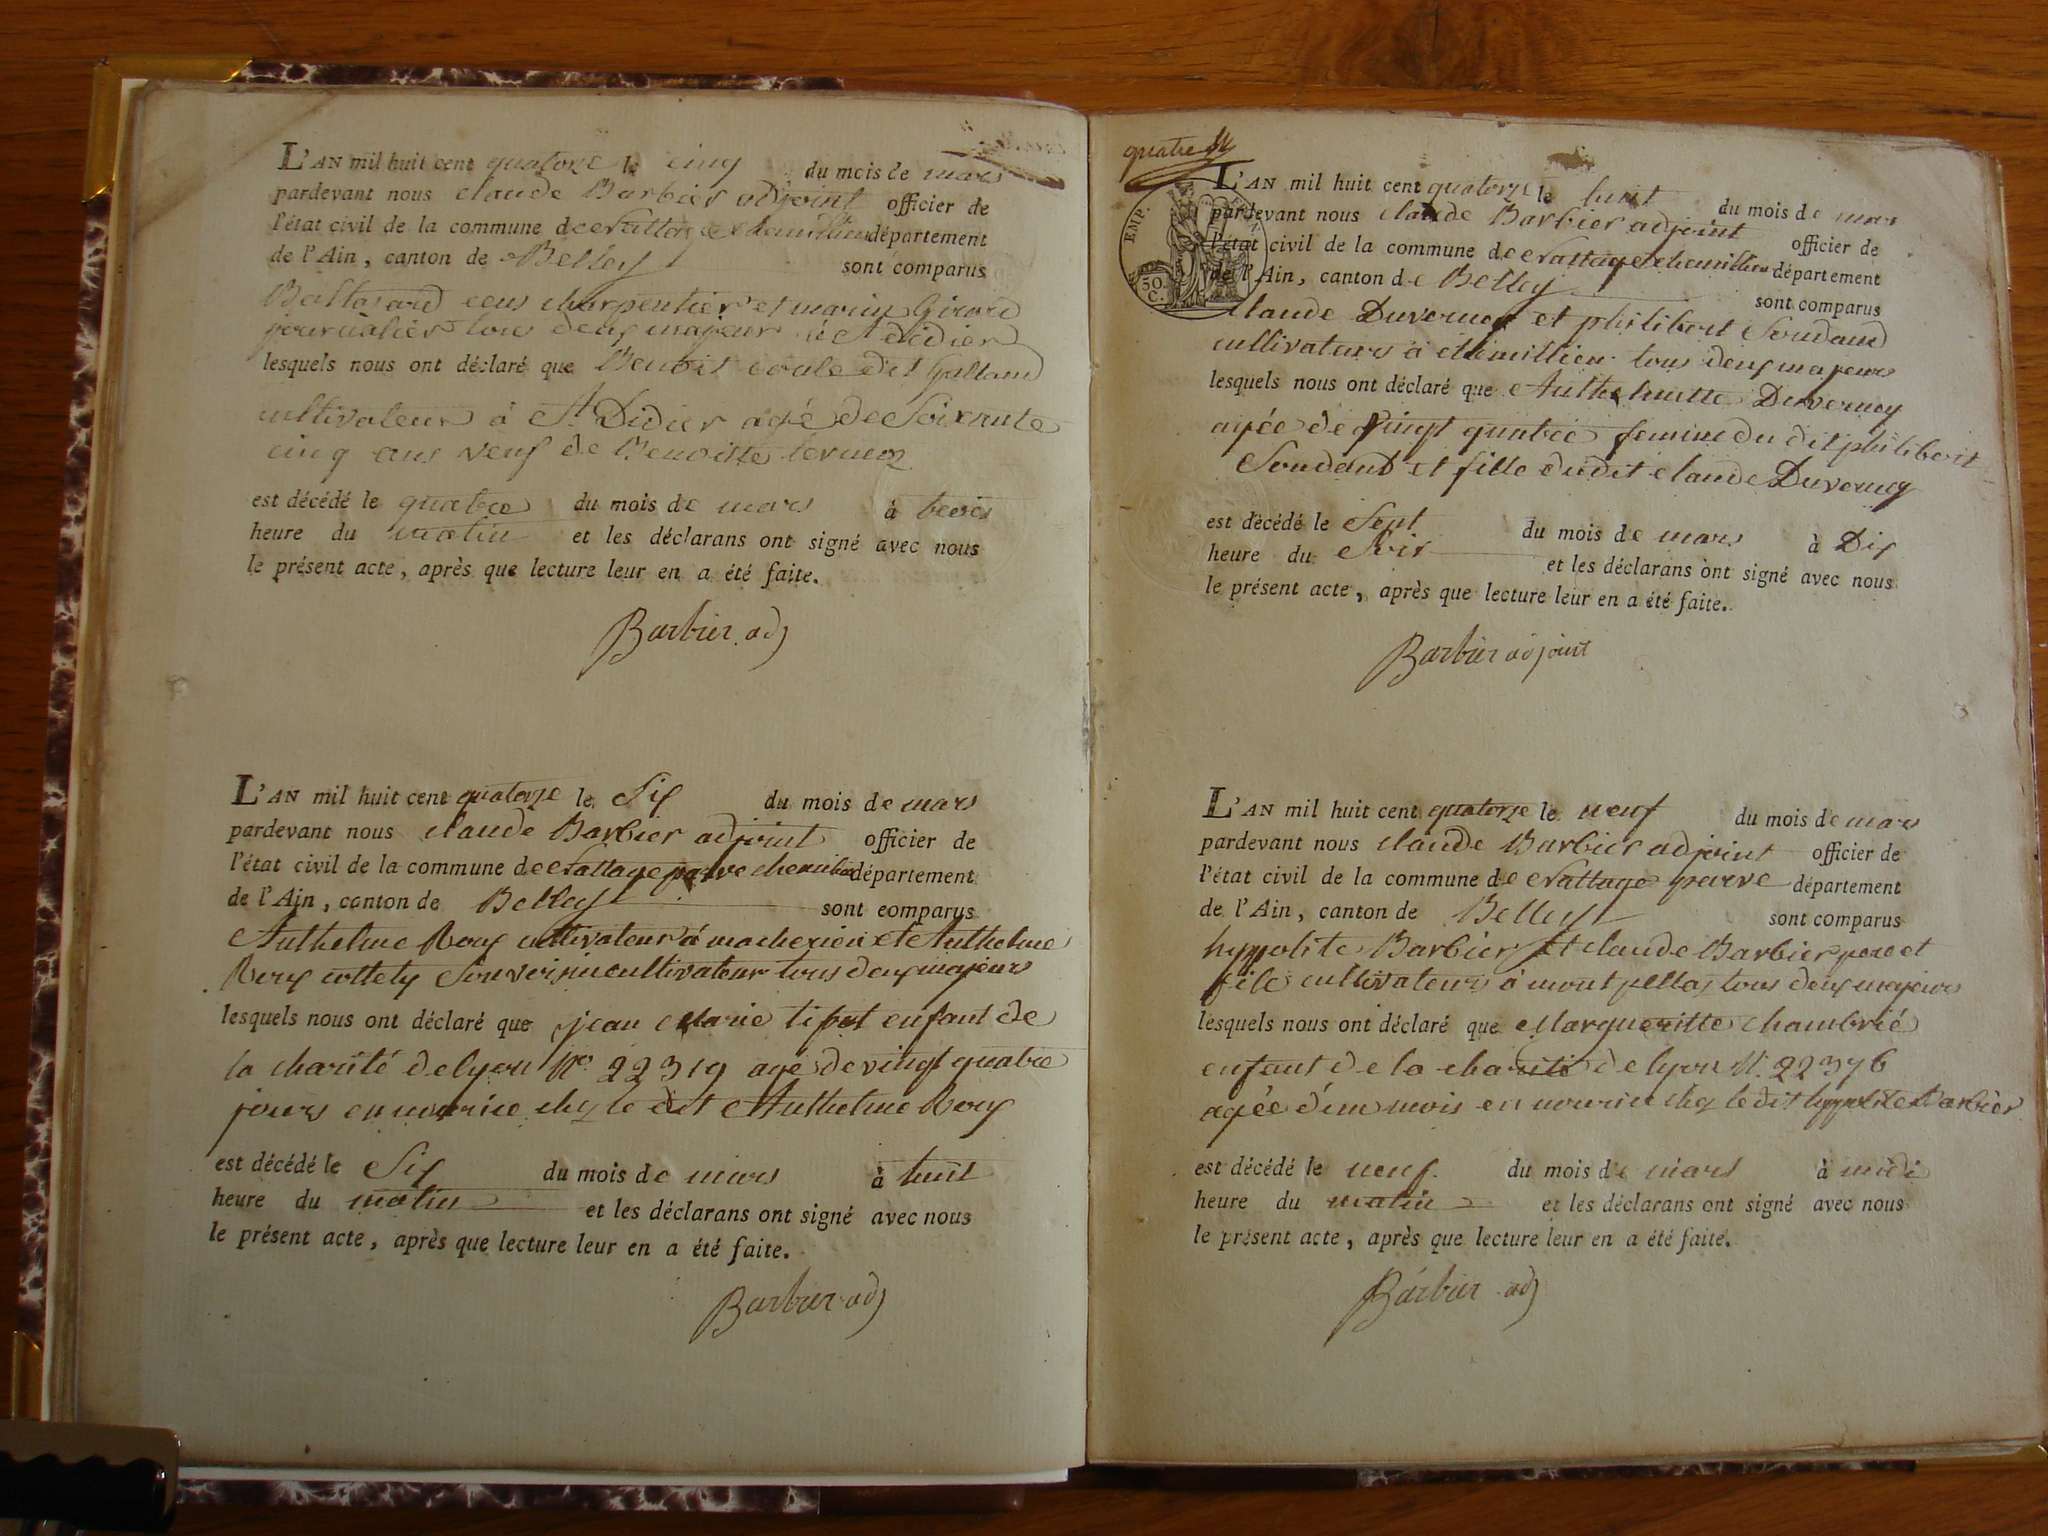 L'AN mil huit cent quatorze le cinq du mois de mars
pardevant nous claude Barbier adjoint officier de
l'état civil de la commune de département
de l'Ain, canton de Belley sont comparus
Baltazard charpentier et marin Girard
journalier tous deux majeur à St didier
lesquels nous ont déclaré que Benoit dit
cultivateur à St Didier agé de Soixante
cinq ans veuf de Benoitte
est décédé le quatre du mois de mars à trois
heure du matin et les déclarans ont signé avec nous
le présent acte, après que lecture leur en a été faite.
Barbier adj
L'AN mil huit cent quatorze le Six du mois de mars
pardevant nous claude Barbier adjoint officier de
l'état civil de la commune de parve département
de l'Ain, canton de Belley sont comparus
Anthelme Roux cultivateur à et Anthelme
Roux son voisin cultivateur tous deux majeurs
lesquels nous ont déclaré que jean Marie enfant de
la charité de lyon No 22319 agé de vingt quatre
jours en nourice chez le dit Anthelme Roux
est décédé le Six du mois de mars à huit
heure du matin et les déclarans ont signé avec nous
le présent acte, après que lecture leur en a été faite.
Barbier adj
quatre
EMP.
50
C.
L'AN mil huit cent quatorze le huit du mois de mars
pardevant nous claude Barbier adjoint officier de
l'état civil de la commune de département
de l'Ain, canton de Belley sont comparus
claude Duverney et philibert Soudand
cultivateurs à tous deux majeurs
lesquels nous ont déclaré que Duverney
agée de vingt quatre femme du dit philibert
Soudand et fille dudit claude Duverney
est décédé le Sept du mois de mars à Dix
heure du Soir et les déclarans ont signé avec nous
le présent acte, après que lecture leur en a été faite.
Barbier adjoint
L'AN mil huit cent quatorze le neuf du mois de mars
pardevant nous claude Barbier adjoint officier de
l'état civil de la commune de parve département
de l'Ain, canton de Belley sont comparus
hyppolite Barbier et claude Barbier pere et
fils cultivateurs à montpellaz tous deux majeurs
lesquels nous ont déclaré que Margueritte chambrié
enfant de la charité de lyon N. 22376
agée d'un mois en nourice chez ledit hyppolite Barbier
est décédé le neuf du mois de mars à midi
heure du matin et les déclarans ont signé avec nous
le présent acte, après que lecture leur en a été faite.
Barbier adj